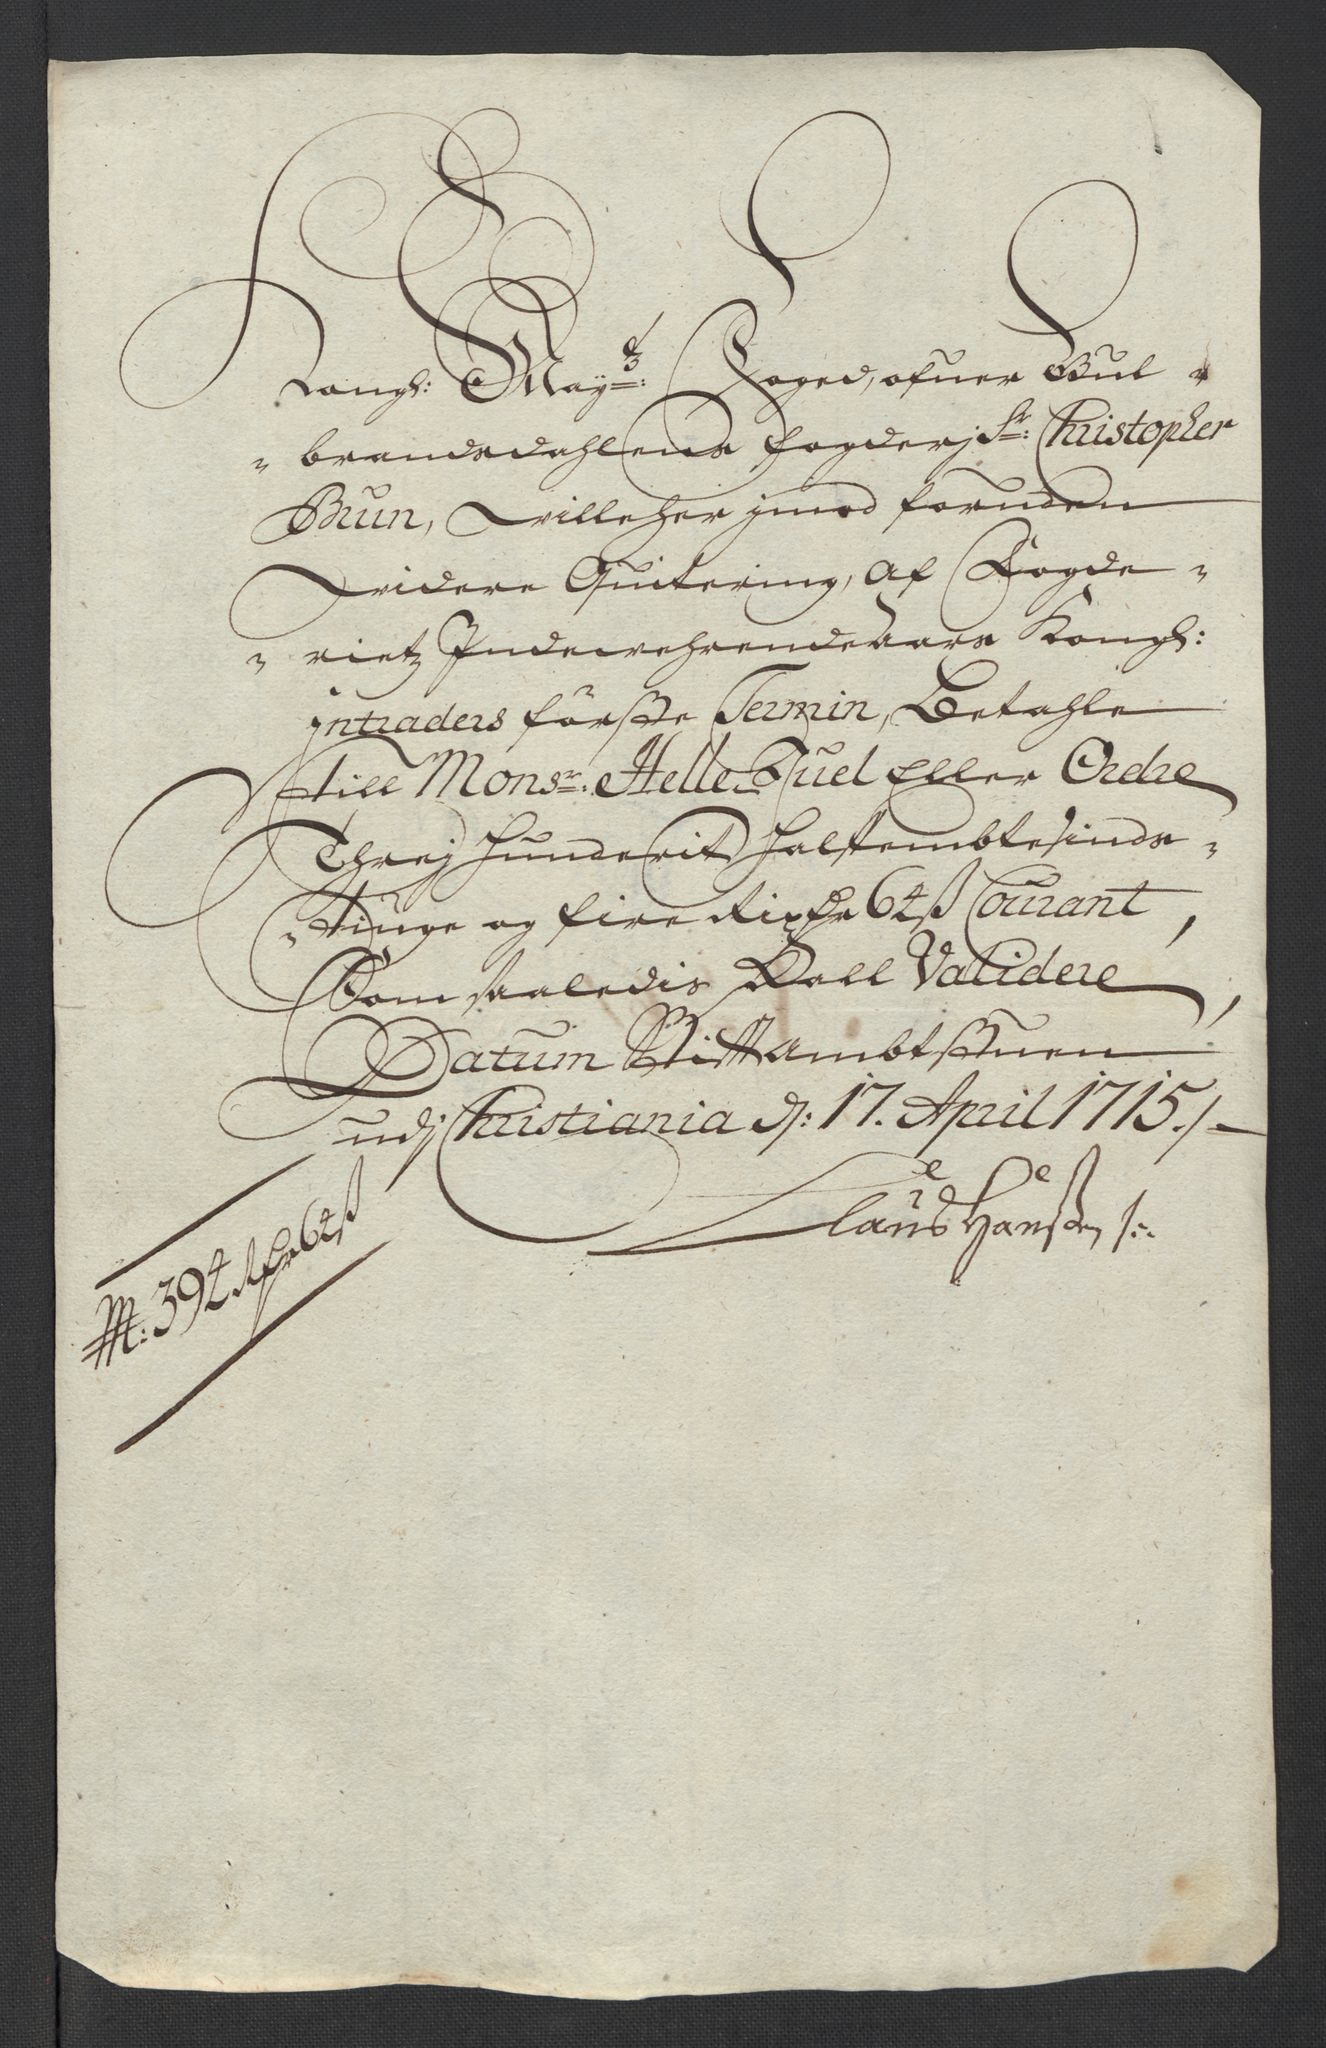 Kongl: May.tz: Foged, ofuer Gul-
-brandsdahlens fogderj Sr: Christopher
Brun, wille her jmod foruden
widere Quitering, af Fogde-
-riet Indewehrende aars Kongl:
jntraders förste Termin, Betahle
till Monsr: Helle Juel Eller Ordre
Threj hundrit halfembtesinds-
-tiuge og fire Rixdr 64 ß Courant,
Som saaledis skall Validere,
Datum Stiftambtstuen
udj Christiania d: 17. April 1715./-
Claus Hansen
M: 394 Rdr 64 ß